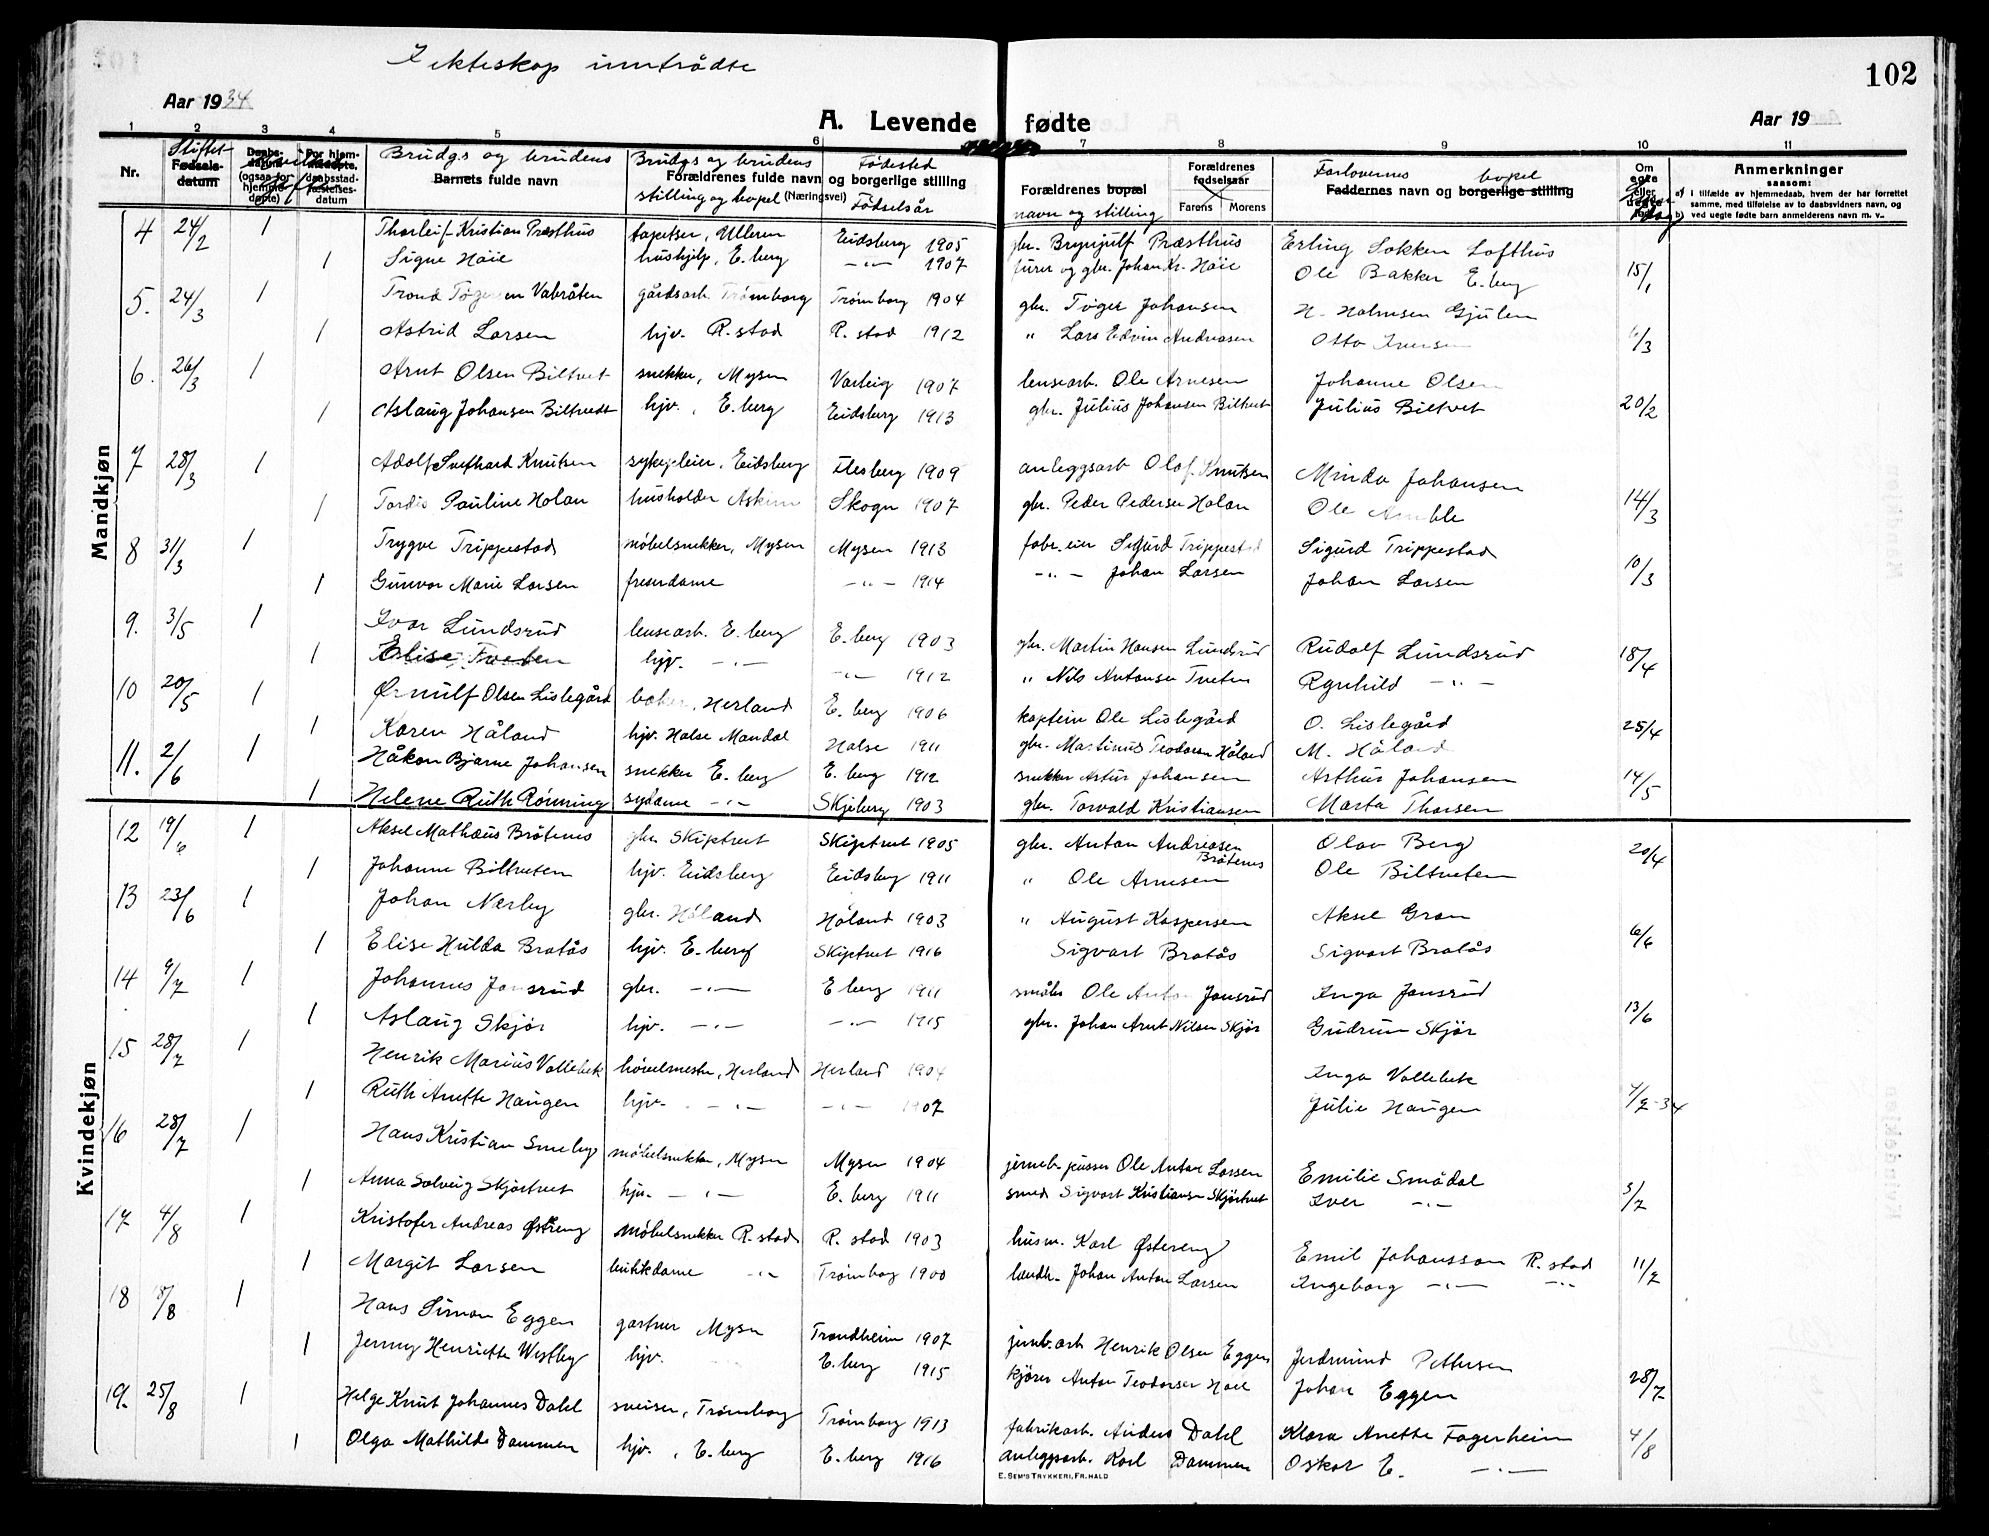 I ekteskap inntrådte
102
Aar 1934
A. Levende fødte
Aar 19
1 2 3 4 5 6 7 8 9 10 11
Nr.
Stiftet
Fødsels-datum
Daabs-datum (ogsaa for hjemme-døpte)
For hjem-medøpte, daabsstad-fæstelses-datum
Brudg.s og brudens
Barnets fulde navn
Brudg.s og brudens Fødested
Forældrenes fulde navn og borgerlige stilling
stilling og bopel (Næringsvei) Fødselsår
Forældrenes bopæl
navn og stilling
Forældrenes fødselsaar
Farens Morens
Forlovernes bopel
Faddernes navn og borgerlige stilling
Om egte eller uegte født
Anmerkninger
saasom:
a) i tilfælde av hjemmedaab, hvem der har forrettet samme, med tilføielse av to daabsvidners navn, og
b) ved uegte fødte barn anmelderens navn m. v.
Mandkjøn
4 24/2 1 Thorleif Kristian Præsthus tapetser, Ulleren Eidsberg 1905 gbr. Brynjulf Præsthus Erling Sokken Lofthus
1 Signe Høie hushjelp, E.berg -"- 1907 furer og gbr. Johan Kr. Høie Ole Bakker E.berg 15/1
5. 24/3 1 Trond Tøgersen Vabråten gårdsarb. Trømborg Trømborg 1904 gbr. Tøger Johansen H. Halmsen Gjulem
1 Astrid Larsen hjv. R.stad R.stad 1912 " Lars Edvin Andreasen Otto Iversen /3
6. 26/3 1 Arnt Olsen Biltvet snekker, Mysen Varteig 1907 lensearb. Ole Arnesen Johanne Olsen
1 Aslaug Johansen Biltvedt hjv., E.berg Eidsberg 1913 gbr. Julius Johansen Biltvet Julius Biltvet 20/2
7 28/3 1 Adolf Knutsen sykepleier, Eidsberg Flesberg 1909 anleggsarb Olof Knutsen Minda Johansen
1 Tordis Pauline Holan husholder Askim Skogn 1907 gbr. Peder Pedersen Holan Ole Amble 14/3
8 31/3 1 Trygve Trippestad møbelsnekker, Mysen Mysen 1913 fabr.eier Sigurd Trippestad Sigurd Trippestad
1 Gunvor Marie Larsen freserdame -"- 1914 -"- Johan Larsen Johan Larsen 10/3
9. 3/5 1 Ivar Lundsrud lensearb. E.berg E.berg 1903 gbr. Martin Hansen Lundsrud Rudolf Lundsrud
1 Elise Tveten hjv. -"- -"- 1912 " Nils Antonsen Tveten Ragnhild -"- 18/4
10 20/5 1 Ørnulf Olsen Lislegård baker, Herland E.berg 1906 kaptein Ole Lislegård O. Lislegård
1 Karen Håland hjv. Halse Mandal Halse 1911 gbr. Martinus Teodorsen Håland M. Håland 25/4
11. 2/6 1 Håkon Bjarne Johansen snekker E.berg E.berg 1912 snekker Artur Johansen Arthur Johansen
1 Helene Ruth Rønning sydame -"- Skjeberg 1903 gbr. Torvald Kristiansen Marta Thorsen 14/5
Kvindekjøn
12 19/6 1 Aksel Mathæus Bråtenes gbr Skiptvet Skiptvet 1905 gbr. Anton Andreasen Bråtenes Olav Berg
1 Johanne Biltveten hjv. Eidsberg Eidsberg 1911 " Ole Arnesen Ole Biltveten 20/4
13 23/6 1 Johan Nerby gbr. Høland Høland 1903 " August Kaspersen Aksel Gran
1 Elise Hulda Bratås hjv. E.berg Skiptvet 1916 Sigvart Bratås Sigvart Bratås 6/6
14 9/7 1 Johannes Jonsrud gbr. -"- E.berg 1911 småbr Ole Anton Jonsrud Inga Jonsrud
1 Aslaug Skjør hjv. -"- -"- 1915 gbr. Johan Arnt Nilsen Skjør Gudrun Skjør 13/6
15 28/7 1 Henrik Marius Vallebek høvelmester, Herland Herland 1904 Inga Vallebek
1 Ruth Anette Haugen hjv. -"- -"- 1907 Julie Haugen 4/7-34
16 28/7 1 Hans Kristian Smeby møbelsnekker, Mysen Mysen 1904 jernb.pusser Ole Anton Larsen Emilie Smådal
1 Anna Solveig Skjørtvet hjv. -"- E.berg 1911 smed Sigvart Kristiansen Skjørtvet Iver -"- 3/7
17 4/8 1 Kristofer Andreas Østreng møbelsnekker R.stad R.stad 1903 husm. Karl Østereng Emil Johansson R.stad
1 Margit Larsen butikkdame -"- Trømborg 1900 landh. Johan Anton Larsen Ingeborg -"- -"- 11/7
18 18/8 1 Hans Simon Eggen gartner Mysen Trondheim 1907 jernb.arb Henrik Olsen Eggen Jerdmund Pettersen
1 Jenny Henriette Westby hjv. E.berg 1915 kjører Anton Teodorsen Noel Johan Eggen 28/7
19. 25/8 1 Helge Knut Johannes Dahl sveiser, Trømborg Trømborg 1913 fabrikarb. Anders Dahl Klara Anette Fagerheim
1 Olga Mathilde Dammen hjv., E.berg E.berg 1916 anleggsarb. Karl Dammen Oskar E. -"- 4/8
E. SEM'S TRYKKERI, FR. HALD